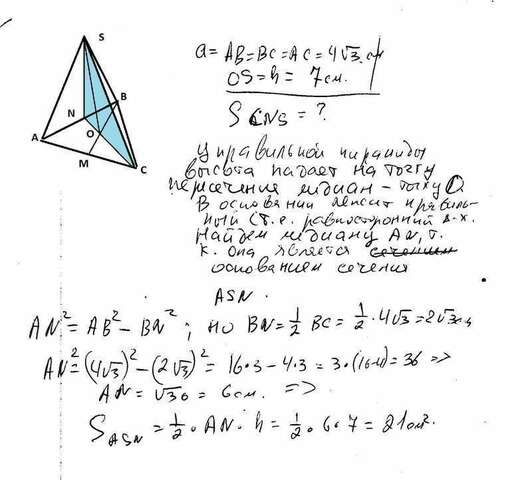 S
B
N
A
O
M
C
a = AB=BC=AC=4√3 см
OS=h= 7см.
S CNS = ?
У правильной пирамиды
высота падает на точку
пересечения медиан - точку O.
В основании лежит правиль-
ный (т.е. равносторонний Δ-к.
Найдем медиану AN, т.
к. она является сечением
основанием сечения
ASN.
AN² = AB² - BN² ; но BN = 1/2 BC = 1/2 · 4√3 = 2√3см
AN² = (4√3)² - (2√3)² = 16·3 - 4·3 = 3·(16-4) = 36 =>
AN = √36 = 6см. =>
S ASN = 1/2 · AN · h = 1/2 · 6 · 7 = 21см².